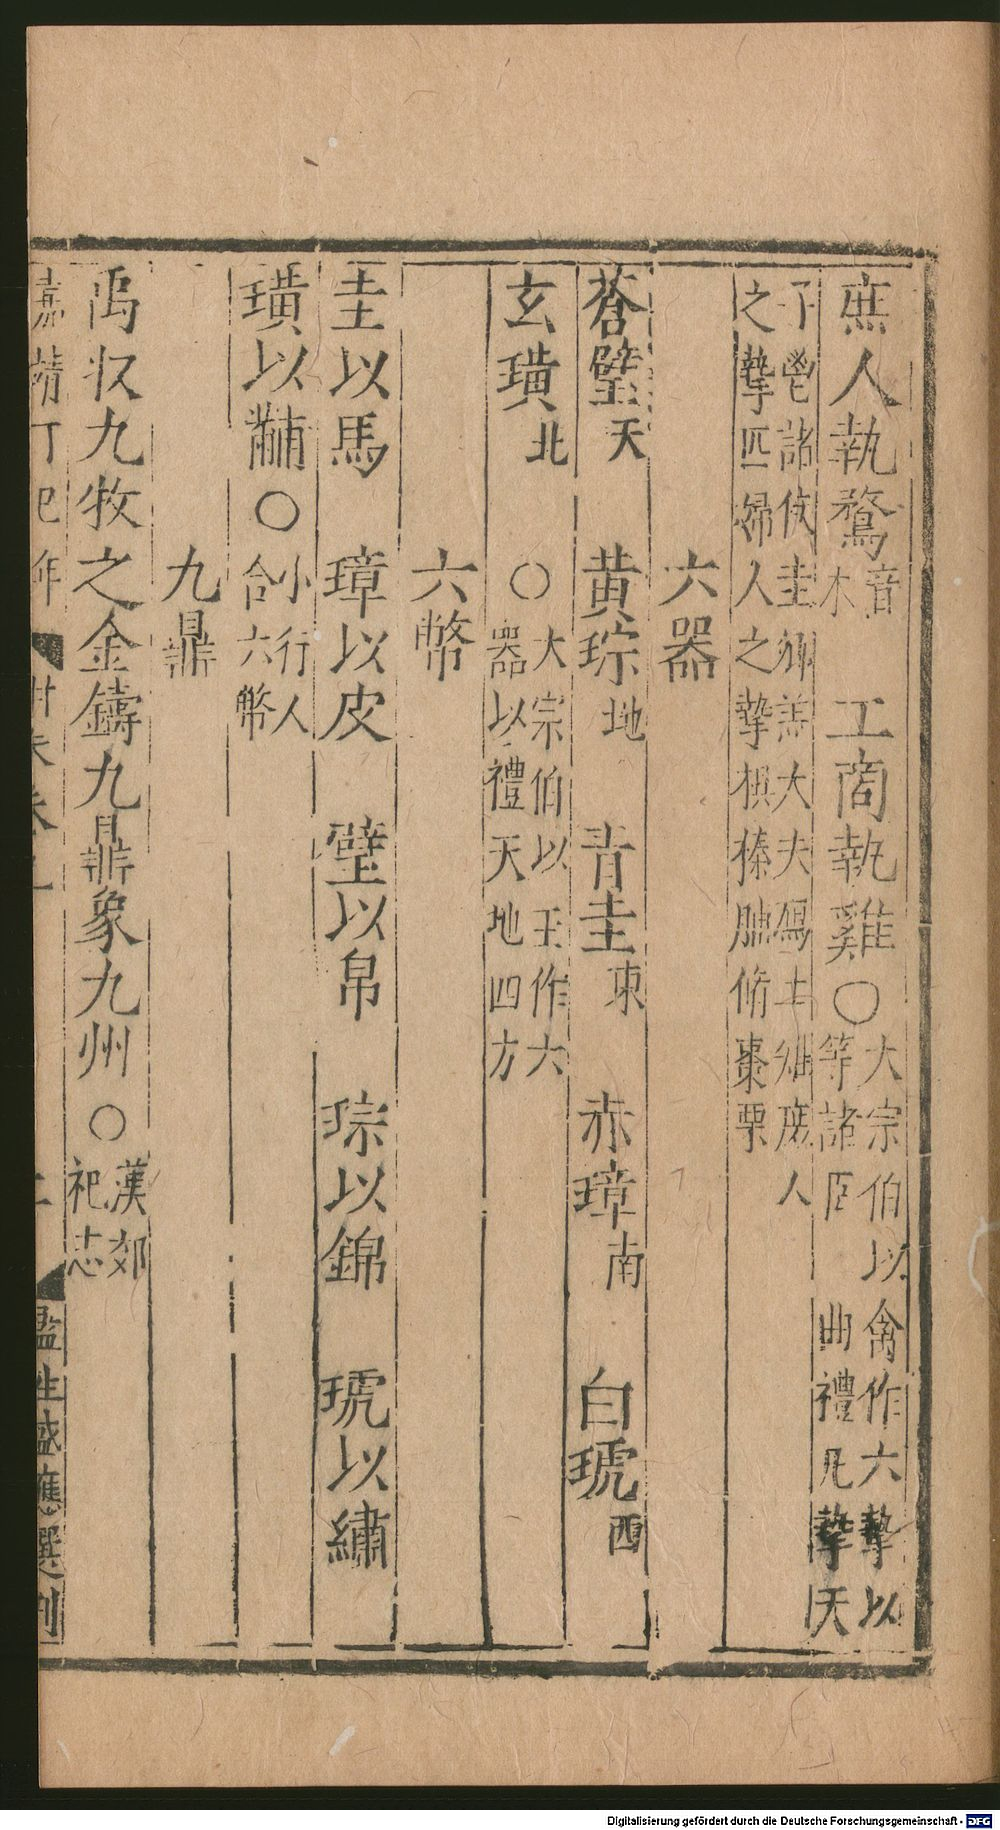 庶人執鶩音木 工商執雞〇大宗伯以禽作六摯以
等諸臣 曲禮凡摯天
子鬯諸侯圭卿羔大夫鴈士雉庶人
之摯匹婦人之摯椇榛脯脩棗栗
六器
蒼璧天 黄琮地 青圭東 赤璋南 白琥西
玄璜北 〇大宗伯以玉作六
器以禮天地四方
六幣
圭以馬 璋以皮 璧以帛 琮以錦 琥以繡
璜以黼〇小行人
合六幣
九鼎
禹収九牧之金鑄九鼎象九州〇漢郊
祀志
嘉靖丁巳年 監生盛應選刊
Digitalisierung gefördert durch die Deutsche Forschungsgemeinschaft - DFG